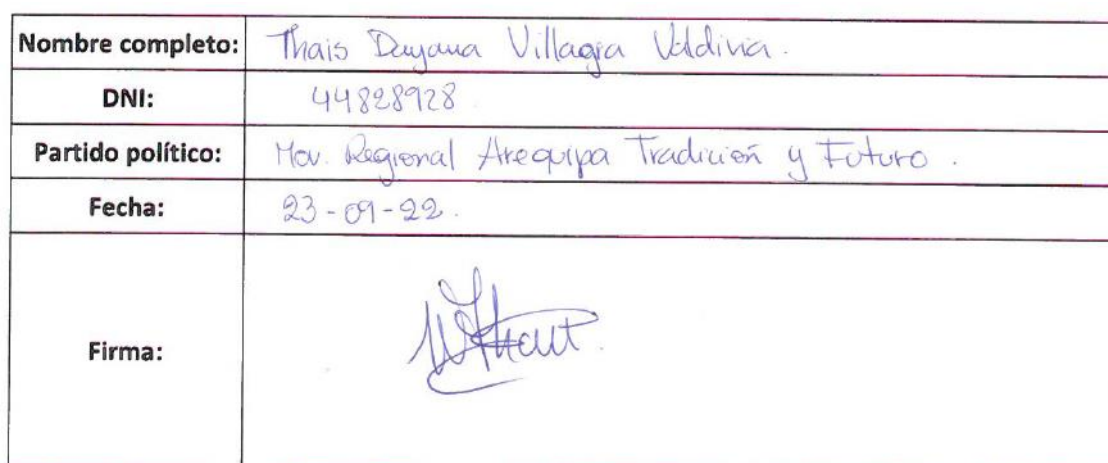 Nombre completo: Thais Dayana Villagra Valdivia.
DNI: 44828928
Partido político: Mov. Regional Arequipa Tradición y Futuro.
Fecha: 23-09-22.
Firma: